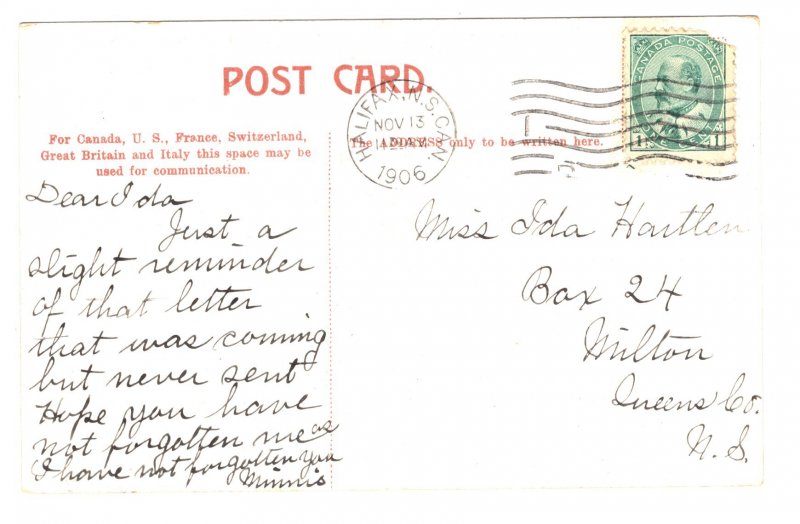 POST CARD.
For Canada, U. S., France, Switzerland,
Great Britain and Italy this space may be
used for communication.
The ADDRESS only to be written here.
HALIFAX, N.S. CAN.
NOV 13
1906
CANADA POSTAGE
1 1
Dear Ida
Just a
slight reminder
of that letter
that was coming
but never sent
Hope you have
not forgotten me as
I have not forgotten you
Minnis
Miss Ida Hartlen
Box 24
Milton
Queens Co.
N. S.